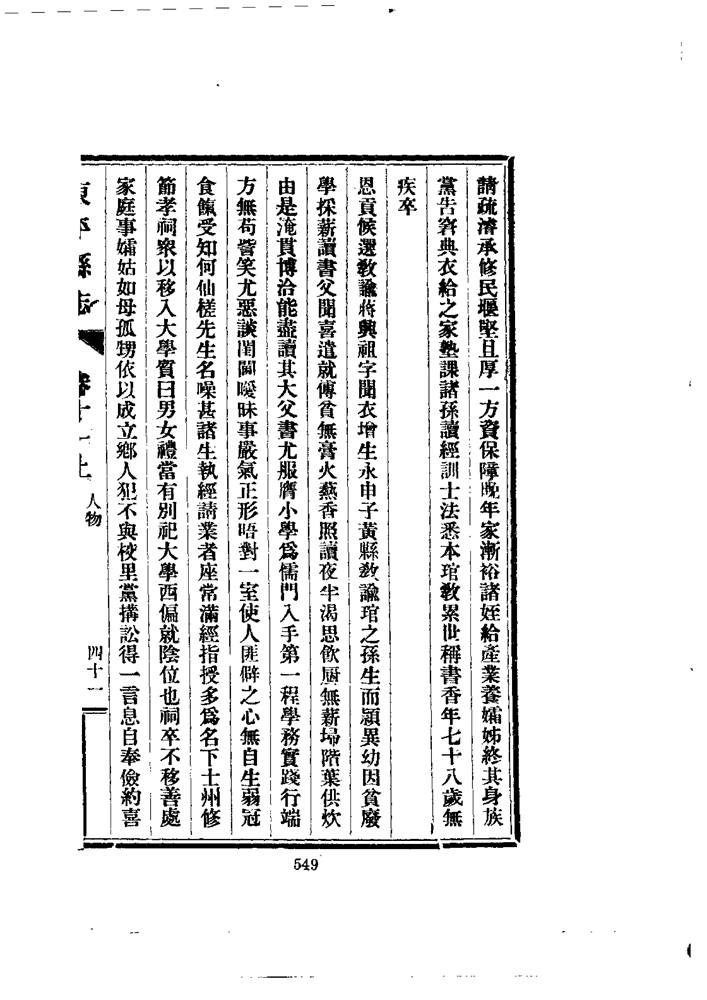 請疏濬承修民堰堅且厚一方資保障晚年家漸裕諸姪給產業養孀姊終其身族
黨告窘典衣給之家塾課諸孫讀經訓士法悉本琯教累世稱書香年七十八歲無
疾卒
恩貢候選教諭蔣興祖字聞衣增生永申子黃縣敎諭琯之孫生而穎異幼因貧廢
學採薪讀書父聞喜遣就傅貧無膏火爇香照讀夜半渴思飲厨無薪埽階葉供炊
由是淹貫博洽能盡讀其大父書尤服膺小學爲儒門入手第一程學務實踐行端
方無苟訾笑尤惡談閨閫曖昧事嚴氣正形晤對一室使人匪僻之心無自生弱冠
食餼受知何仙槎先生名噪甚諸生執經請業者座常滿經指授多爲名下士州修
節孝祠衆以移入大學質曰男女禮當有別祀大學西偏就陰位也祠卒不移善處
家庭事孀姑如母孤甥依以成立鄉人犯不與校里黨搆訟得一言息自奉儉約喜
東平縣志 卷十一上 人物 四十一
549